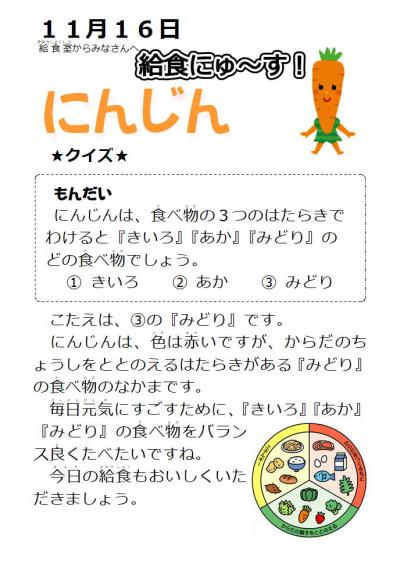 11月16日
給食室からみなさんへ
給食にゅ~す!
にんじん
★クイズ★
もんだい
にんじんは、食べ物の３つのはたらきで
わけると『きいろ』『あか』『みどり』の
どの食べ物でしょう。
① きいろ ② あか ③ みどり
こたえは、③の『みどり』です。
にんじんは、色は赤いですが、からだのち
ょうしをととのえるはたらきがある『みどり』
の食べ物のなかまです。
毎日元気にすごすために、『きいろ』『あか』
『みどり』の食べ物をバラン
ス良くたべたいですね。
今日の給食もおいしくいた
だきましょう。
からだの調子をととのえる